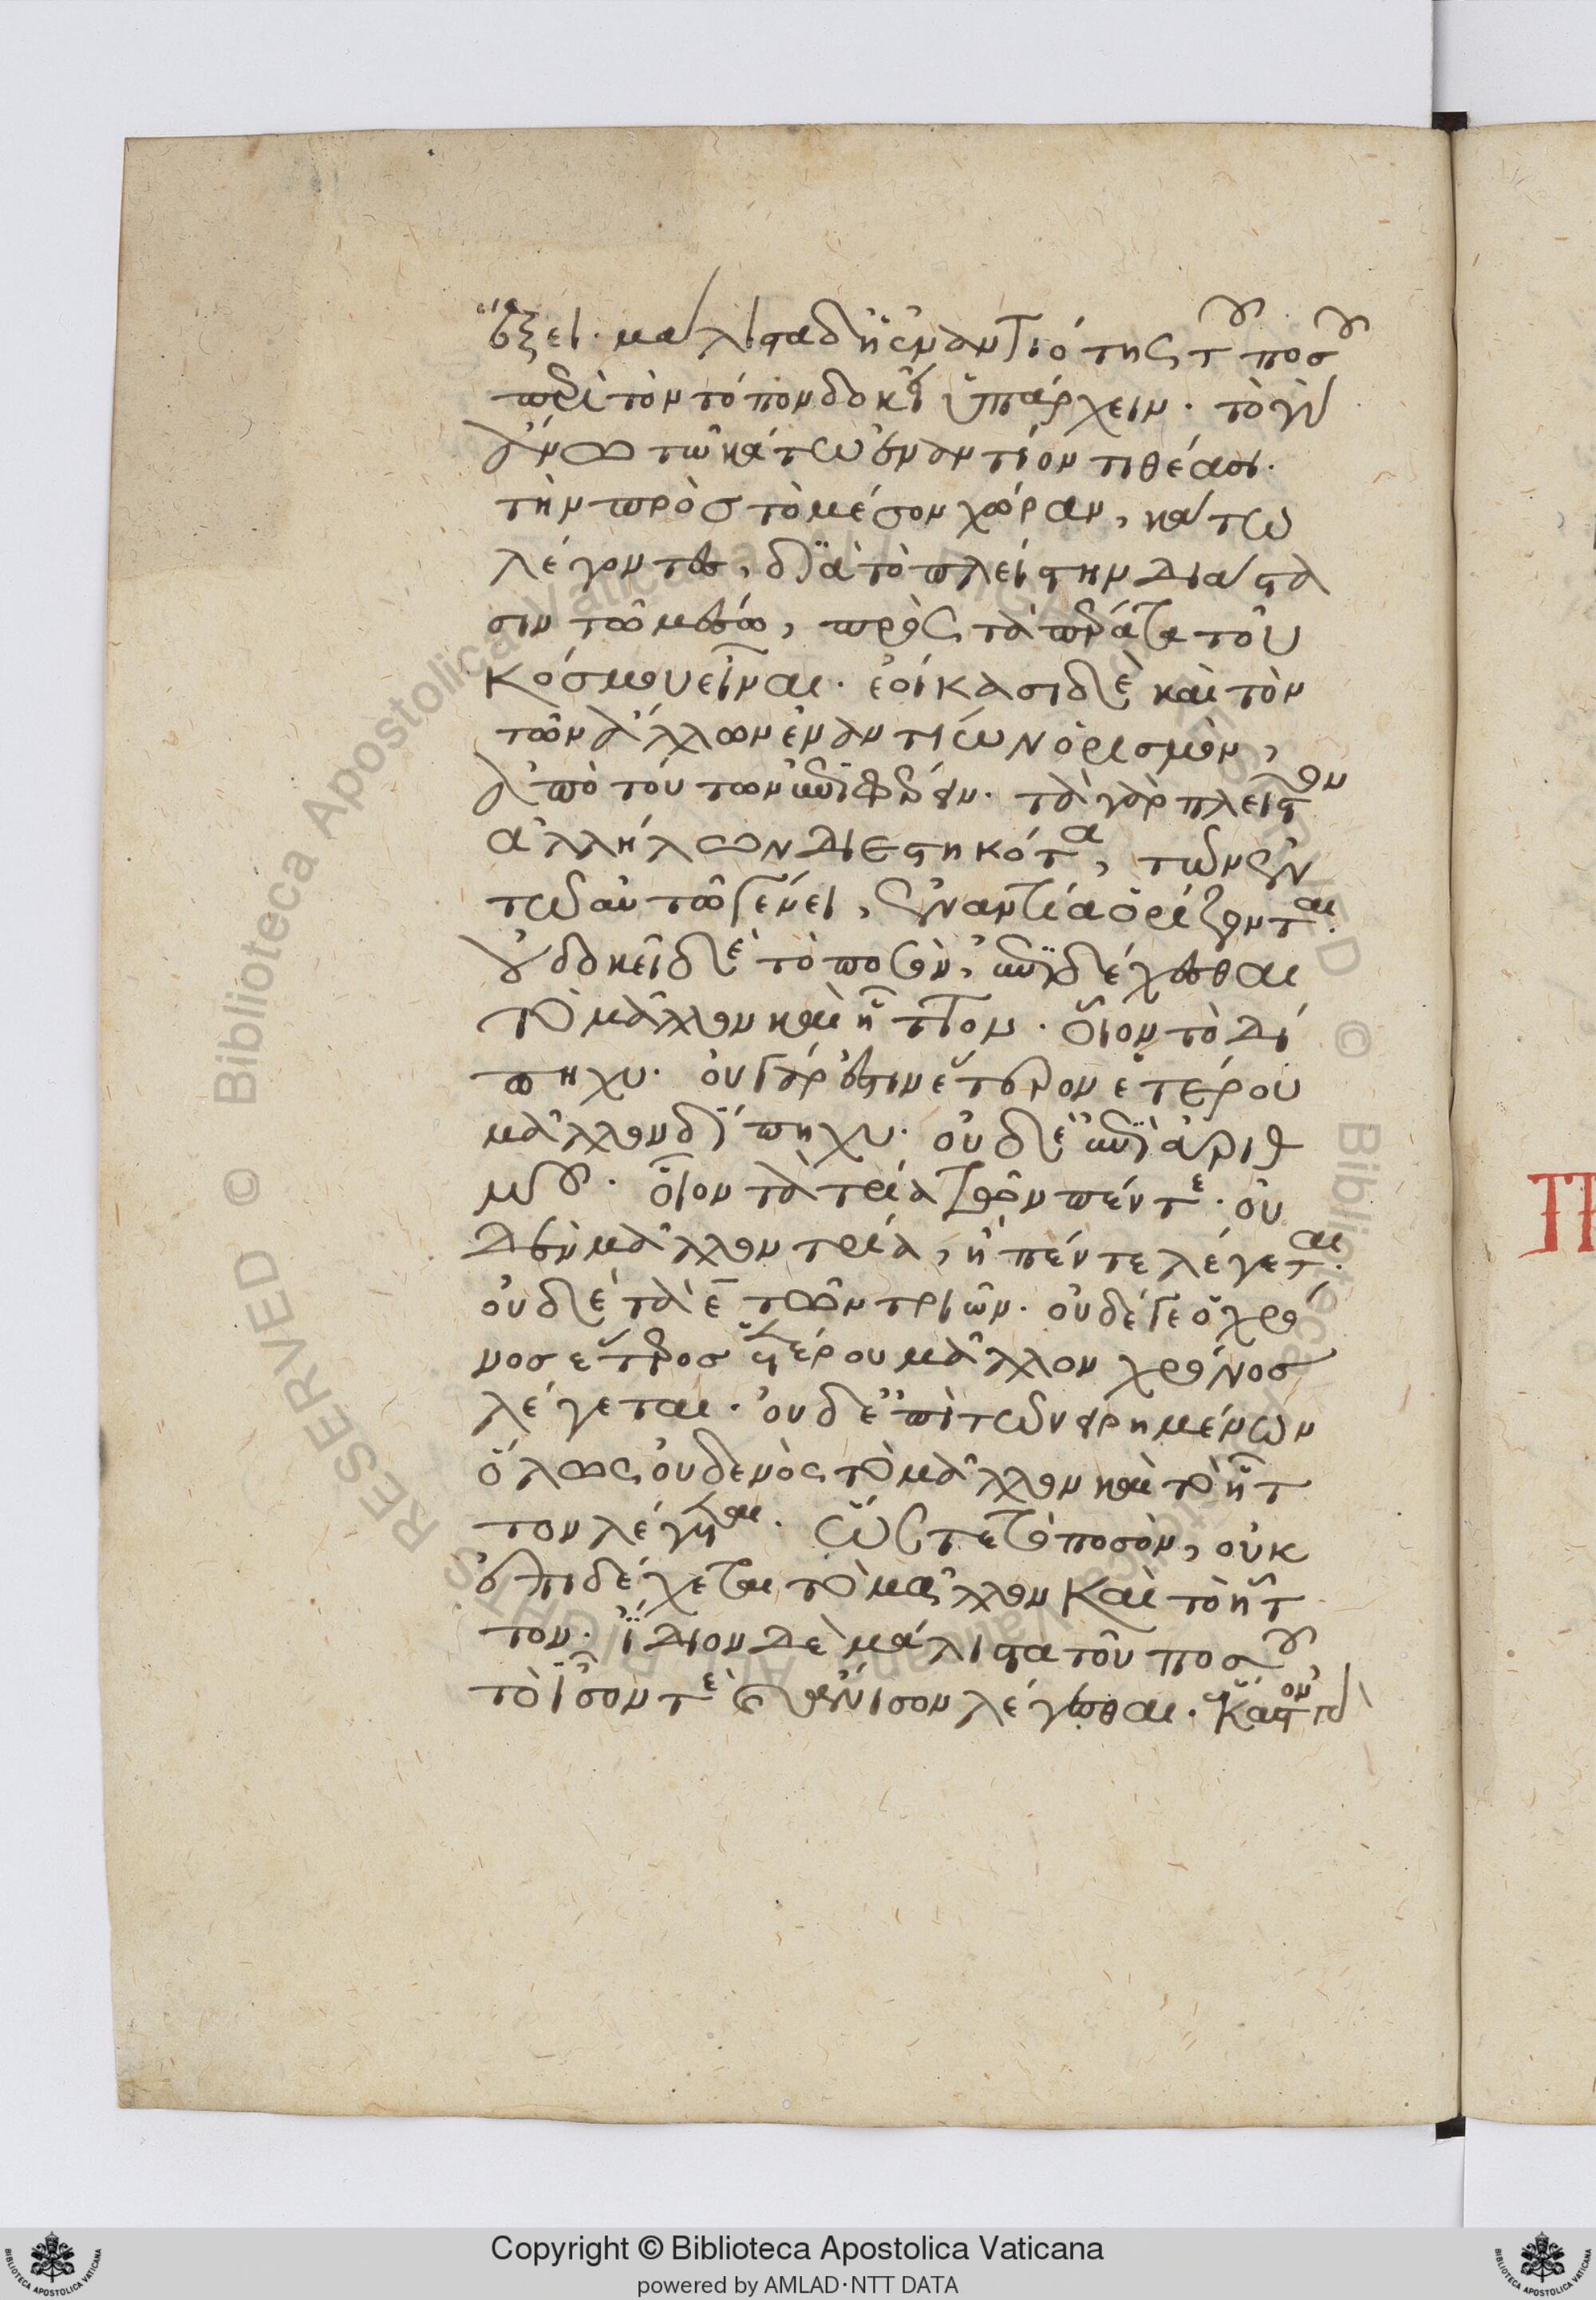 ἕξει. μάλιστα δὲ ἡ ἐναντιότης τοῦ ποσοῦ
περὶ τὸν τόπον δοκεῖ ὑπάρχειν. τὸ γὰρ
ἄνω τῶ κάτω ἐναντίον τιθέασι.
τὴν πρὸς τὸ μέσον χώραν, κάτω
λέγοντες, διὰ τὸ πλείστην διάστα
σιν τῶ μέσω, πρὸς τὰ πέρατα τοῦ
κόσμου εἶναι. ἐοίκασι δὲ καὶ τὸν
τῶν ἄλλων ἐναντίων ὁρισμὸν,
ἀπὸ τούτων ἐπιφέρειν. τὰ γὰρ πλεῖστον
ἀλλήλων διεστηκότα, τῶν ἐν
τῶ αὐτῶ γένει, ἐναντία ὁρίζονται.
οὐ δοκεῖ δὲ τὸ ποσὸν, ἐπιδέχεσθαι
τὸ μᾶλλον καὶ ἧττον. οἷον τὸ δί
πηχυ. οὐ γάρ ἐστιν ἕτερον ἑτέρου
μᾶλλον δίπηχυ. οὐδὲ ἐπὶ ἀριθ
μοῦ. οἷον τὰ τρία τῶν πέντε. οὐ
δὲν μᾶλλον τρία, ἢ πέντε λέγεται.
οὐδὲ τὰ ε̄ τῶν τριῶν. οὐδέ γε ὁ χρό
νος ἕτερος ἑτέρου μᾶλλον χρόνος
λέγεται. οὐδ' ἐπὶ τῶν εἰρημένων
ὅλως οὐδενὸς τὸ μᾶλλον καὶ τὸ ἧτ
τον λέγεται. ὥστε τὸ ποσὸν, οὐκ
ἐπιδέχεται τὸ μᾶλλον καὶ τὸ ἧτ
τον. ἴδιον δὲ μάλιστα τοῦ ποσοῦ
τὸ ἴσον τὲ καὶ ἄνισον λέγεσθαι. ἕκαστον